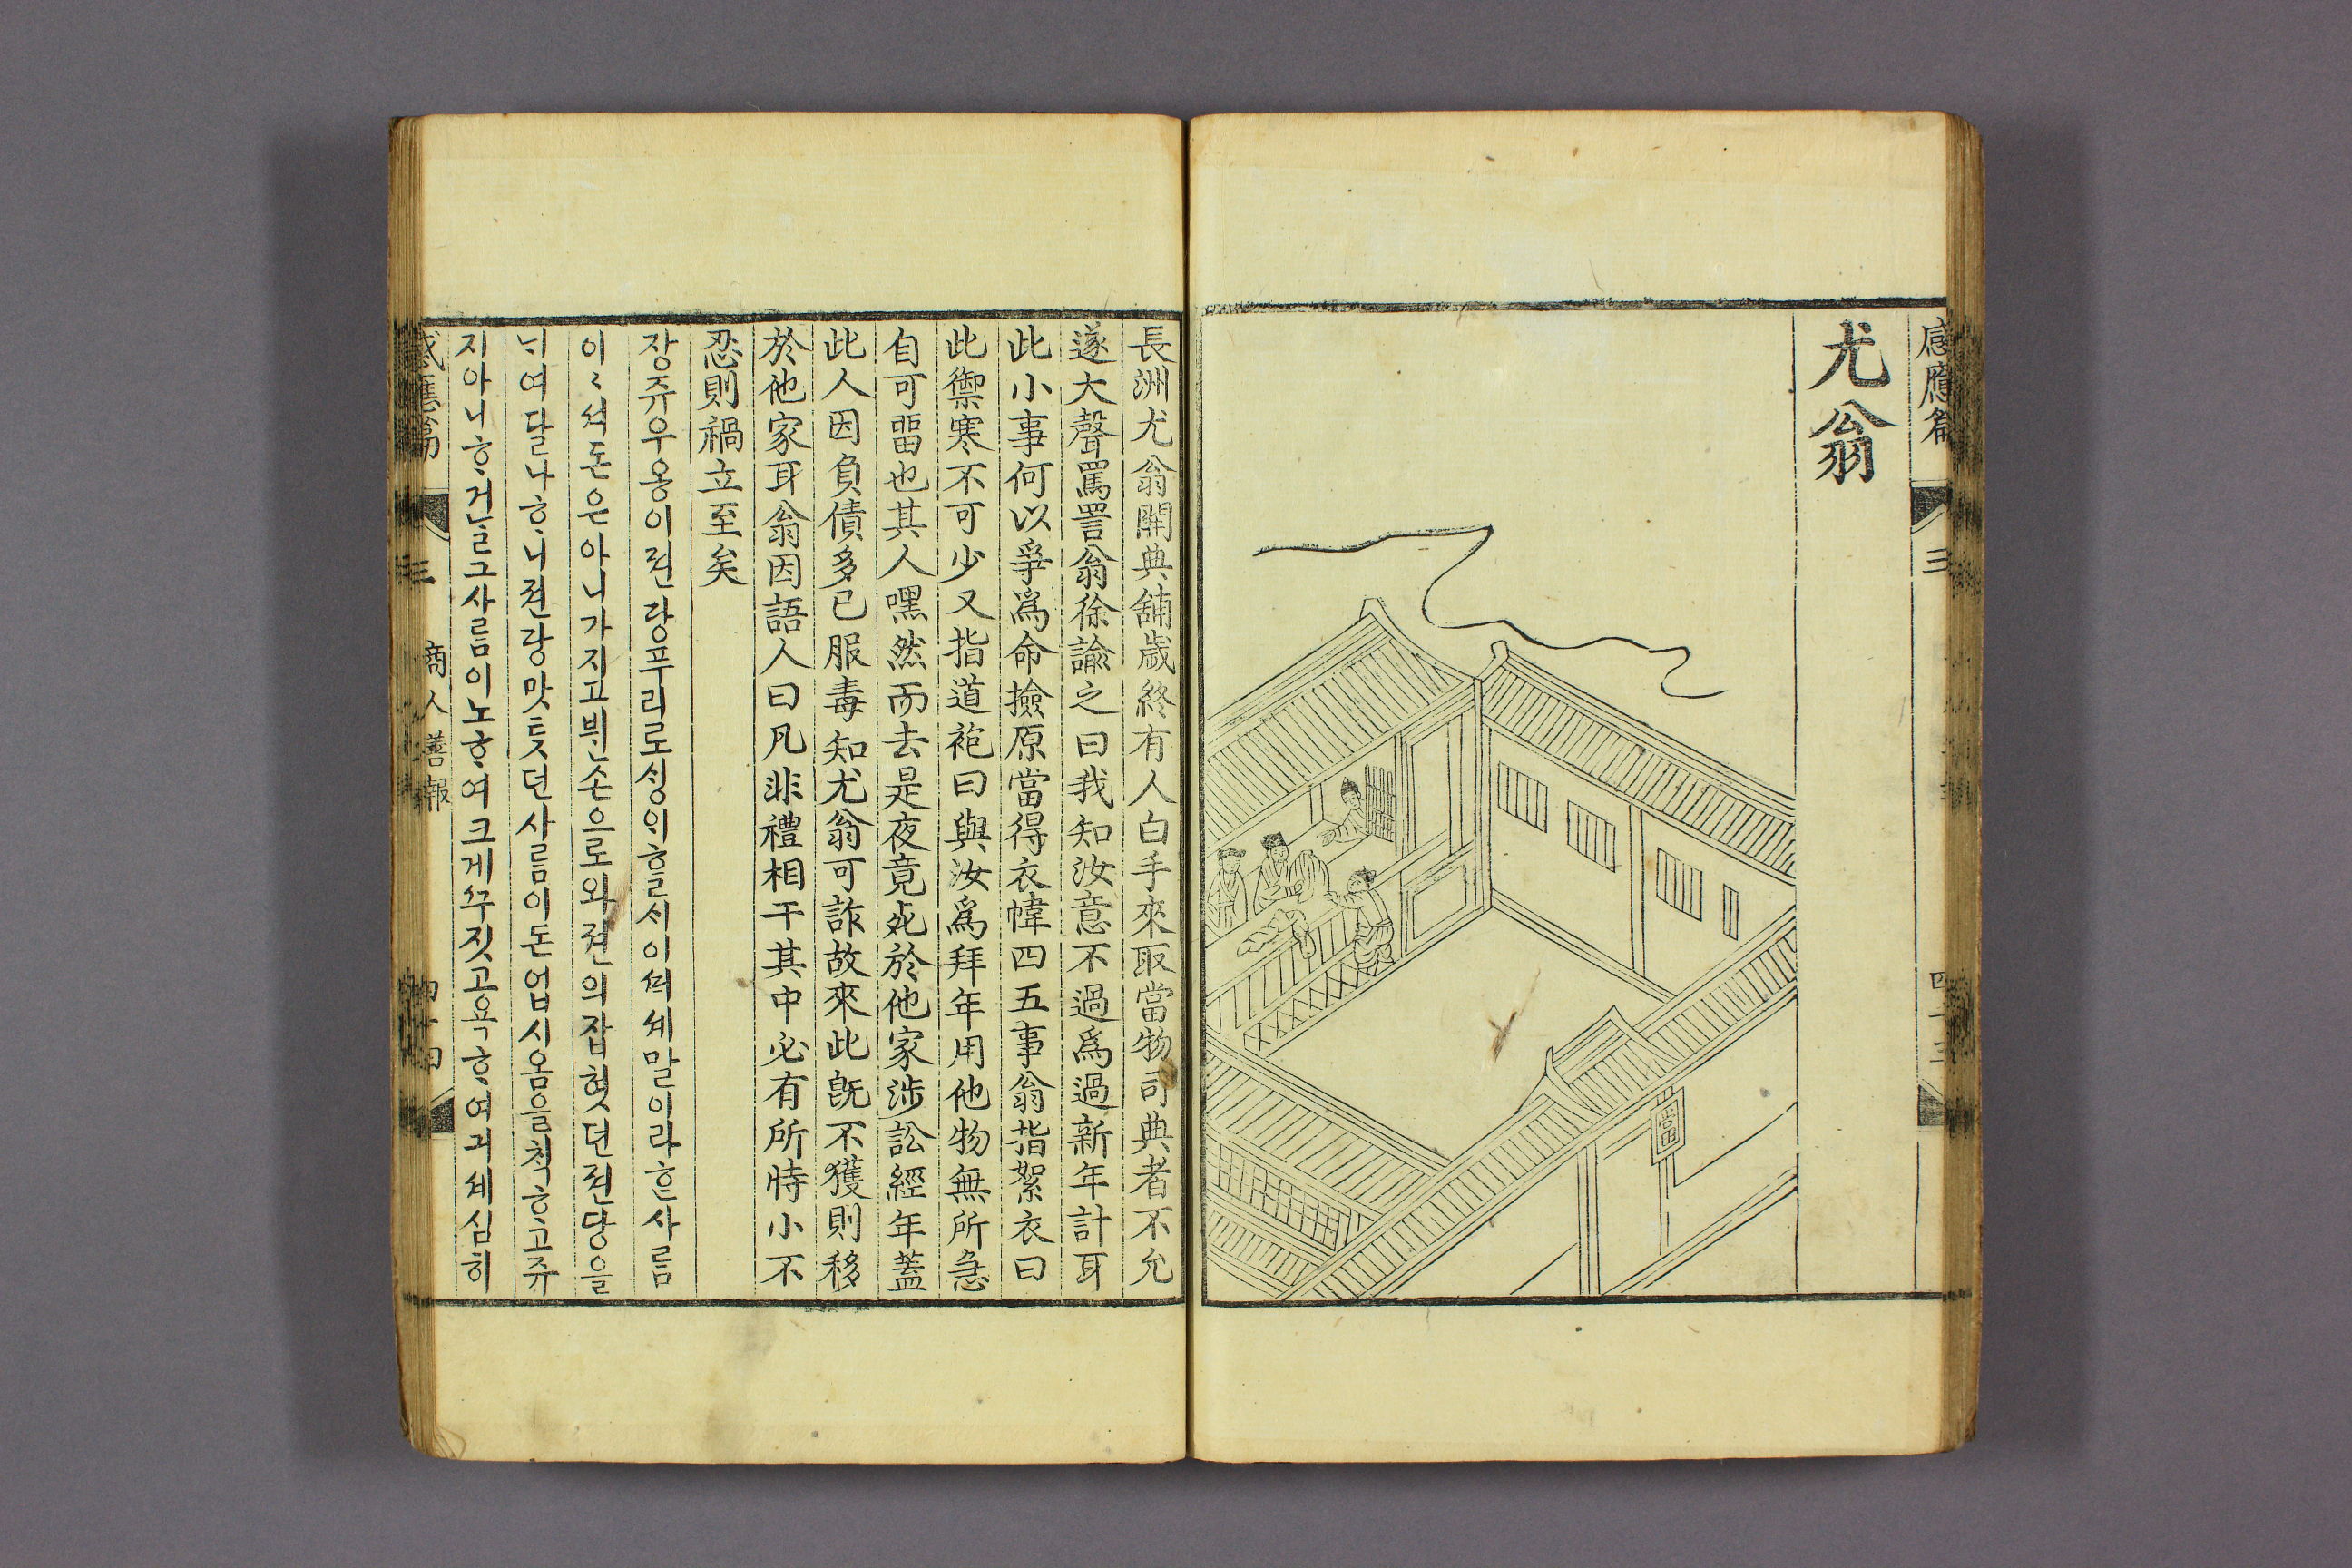 感應篇 三
尤翁
當
長洲尤翁開典舖歲終有人白手來取當物司典者不允
遂大聲罵詈翁徐諭之曰我知汝意不過爲過新年計耳
此小事何以爭爲命撿原當得衣幃四五事翁指絮衣曰
此禦寒不可少又指道袍曰與汝爲拜年用他物無所急
自可畱也其人嘿然而去是夜竟死於他家涉訟經年蓋
此人因負債多已服毒知尤翁可詐故來此旣不獲則移
於他家耳翁因語人曰凡非禮相干其中必有所恃小不
忍則禍立至矣
장쥬우옹이젼당푸리로싱이ᄒᆞᆯᄉᆡ이셔셰말이라ᄒᆞᆫ사ᄅᆞᆷ
이〻셔돈은아니가지고뷘손으로와젼의잡혓던젼당을
ᄂᆡ여달나ᄒᆞ니젼당맛톳던사ᄅᆞᆷ이돈업시옴을ᄎᆡᆨᄒᆞ고쥬
지아니ᄒᆞ거ᄂᆞᆯ그사ᄅᆞᆷ이노ᄒᆞ여크게ᄭᅮ짓고욕ᄒᆞ여긔셰심히
感應篇 三 商人善報 四十四